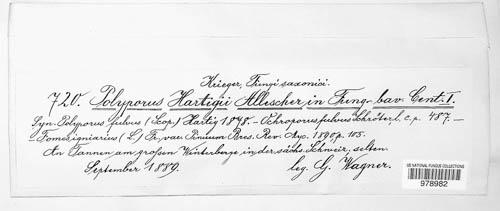 Krieger, Fungi saxonici.
720. Polyporus Hartigii Allescher in Fung. bav. Cent. I.
Syn. Polyporus fulvus (Scop.) Hartig 1878. - Ochroporus fulvus Schröter l. c. p. 487. -
Fomes igniarius (L.) Fr. var. Pinuum Bres. Rev. Myc. 1890 p. 105.
An Tannen am großen Winterberge in der sächs. Schweiz, selten.
September 1889. leg. G. Wagner.
US NATIONAL FUNGUS COLLECTIONS
978982